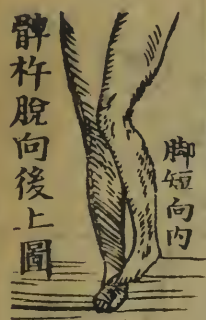 脚短向内
髀杵脫向後上圖